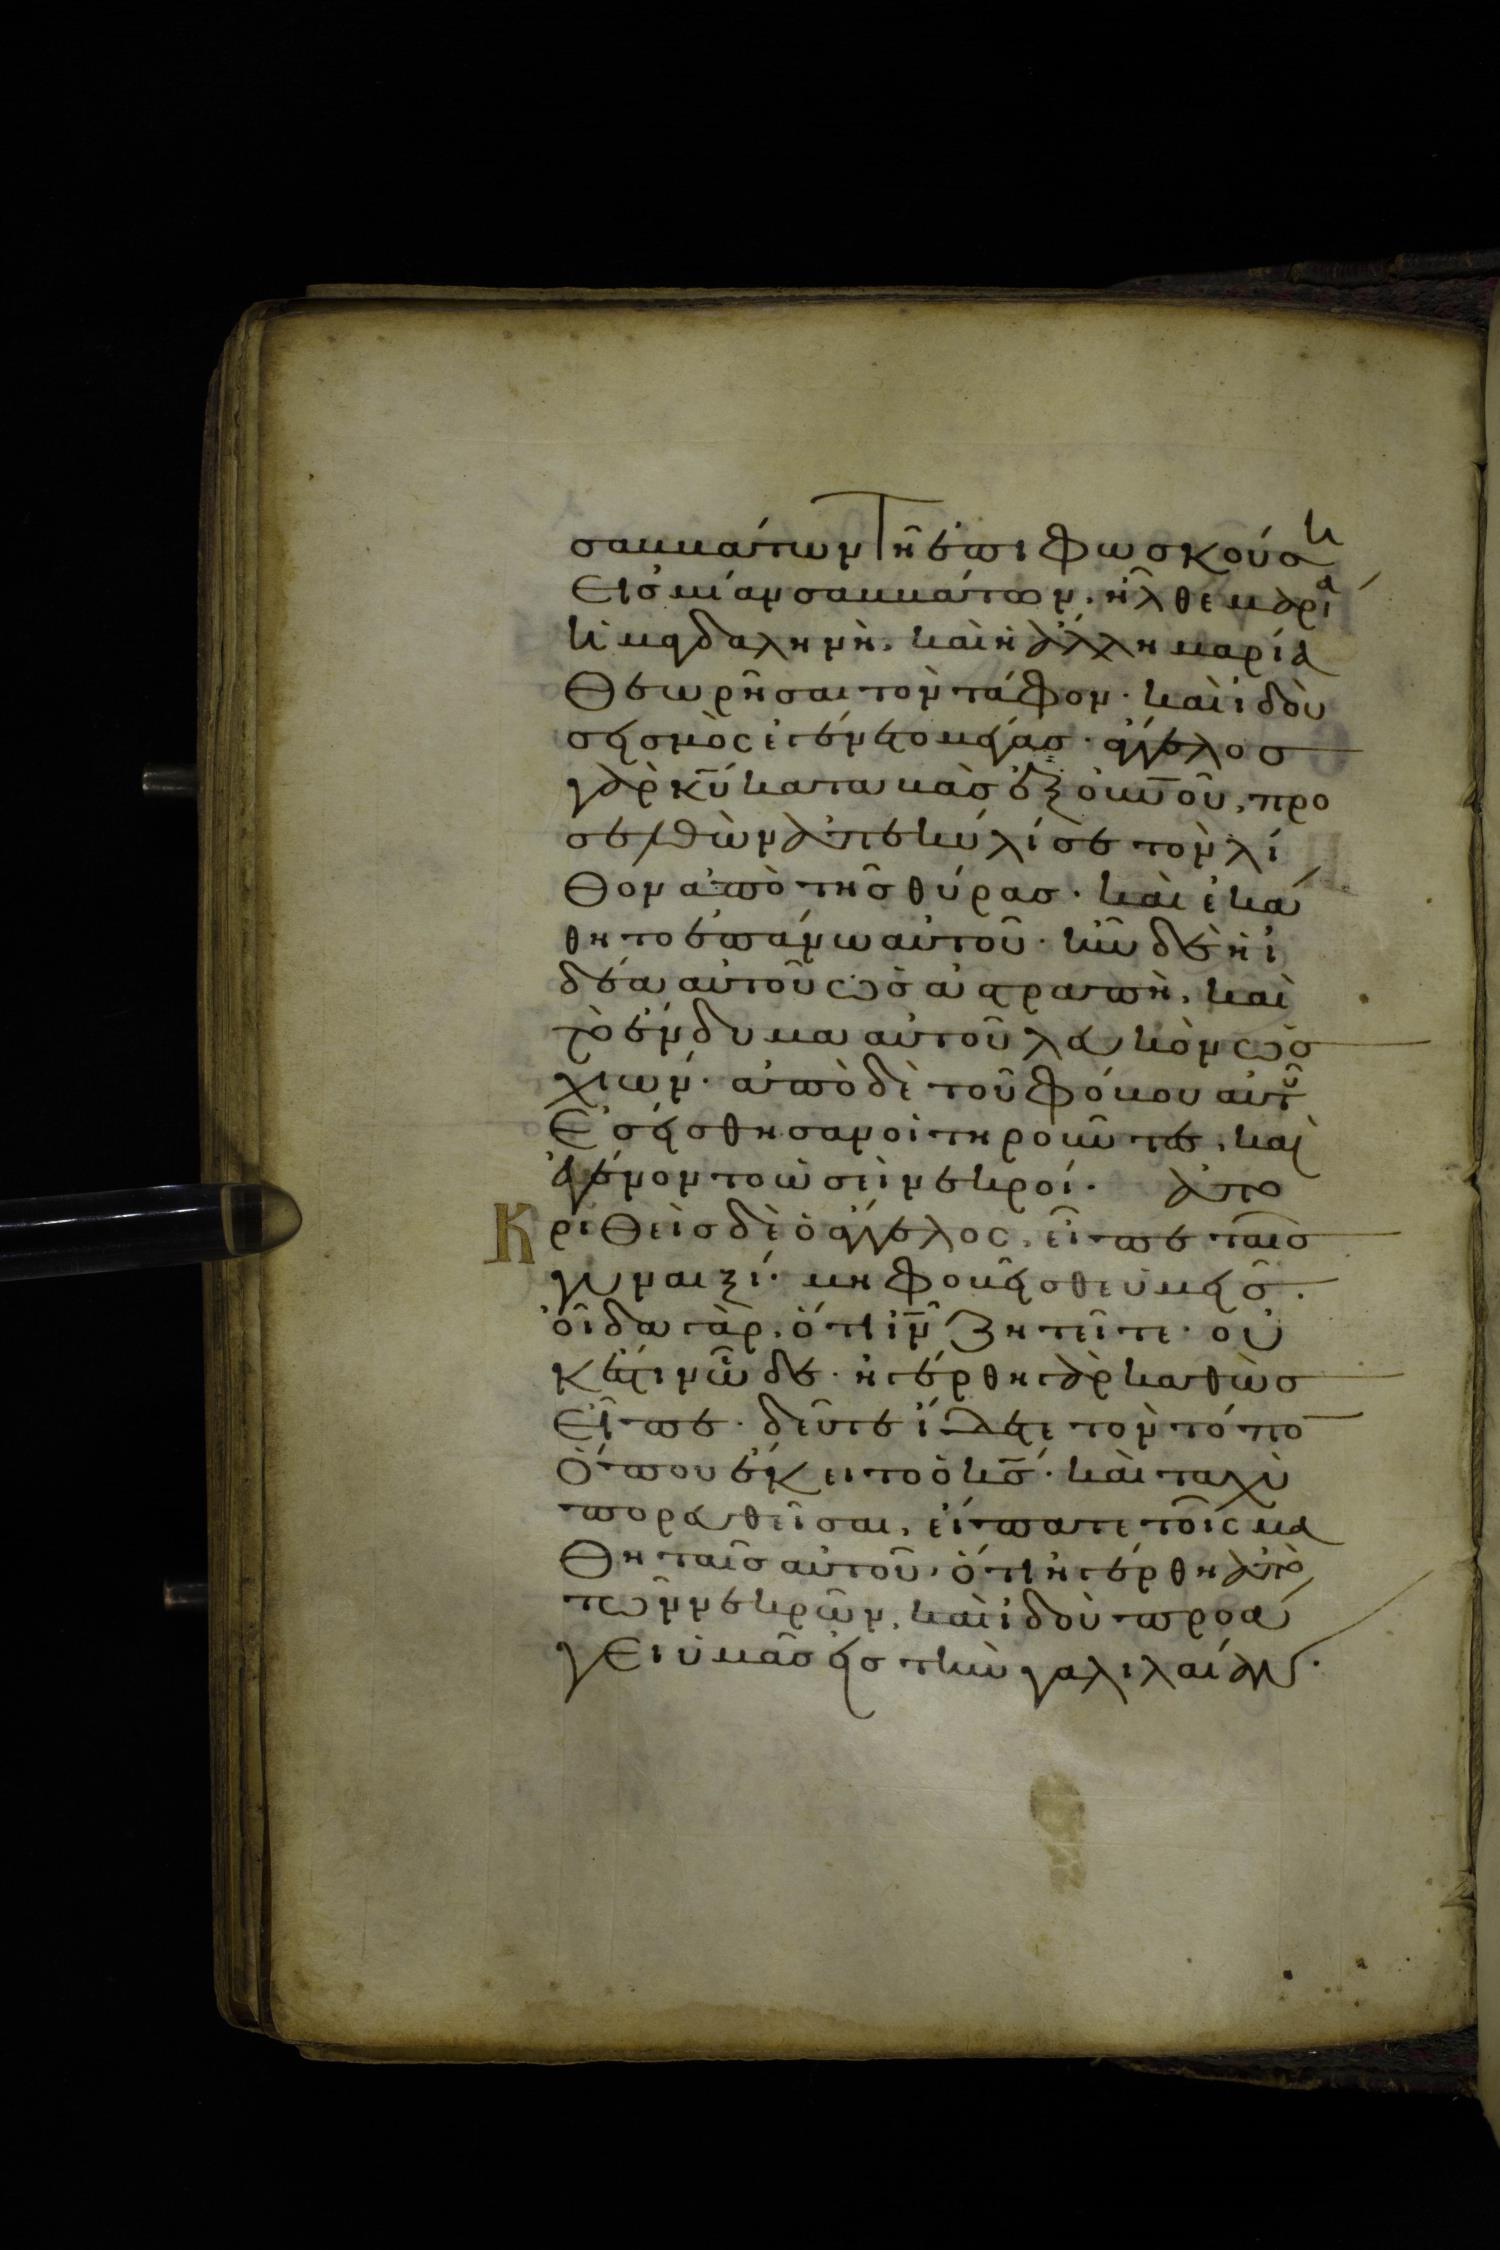 σαββάτων Τῆ ἐπιφωσκούση
Εἰς μίαν σαββάτων. ἦλθε μαρία
ἡ μαγδαληνὴ. καὶ ἡ ἄλλη μαρία
Θεωρῆσαι τὸν τάφον. καὶ ἰδοὺ
σεισμὸς ἐγένετο μέγας. ἄγγελος
γὰρ κ̅υ̅ καταβὰς ἐξ ο̅υ̅ν̅ο̅υ̅, προ
σελθὼν ἀπεκύλισε τὸν λί
Θον ἀπὸ τῆς θύρας. καὶ ἐκά
θητο ἐπάνω αὐτοῦ. ἦν δὲ ἡ ἰ
δέα αὐτοῦ ὡς ἀστραπὴ, καὶ
τὸ ἔνδυμα αὐτοῦ λευκὸν ὡς
χιών. ἀπὸ δὲ τοῦ φόβου αὐτοῦ
Ἐσείσθησαν οἱ τηροῦντες, καὶ
ἐγένοντο ὡσεὶ νεκροί. ἀπο
Κριθεὶς δὲ ὁ ἄγγελος, εἶπε ταῖς
γυναιξί. μὴ φοβεῖσθε ὑμεῖς.
οἶδα γὰρ, ὅτι ι̅ν̅ ζητεῖτε. οὐ
κ ἔστιν ὧδε. ἠγέρθη γὰρ καθὼς
Εἶπε. δεῦτε ἴδετε τὸν τόπο
Ὅπου ἔκειτο ὁ κ̅ς̅. καὶ ταχὺ
πορευθεῖσαι, εἴπατε τοῖς μα
Θηταῖς αὐτοῦ, ὅτι ἠγέρθη ἀπὸ
τῶν νεκρῶν, καὶ ἰδοὺ προά
γει ὑμᾶς εἰς τὴν γαλιλαίαν.